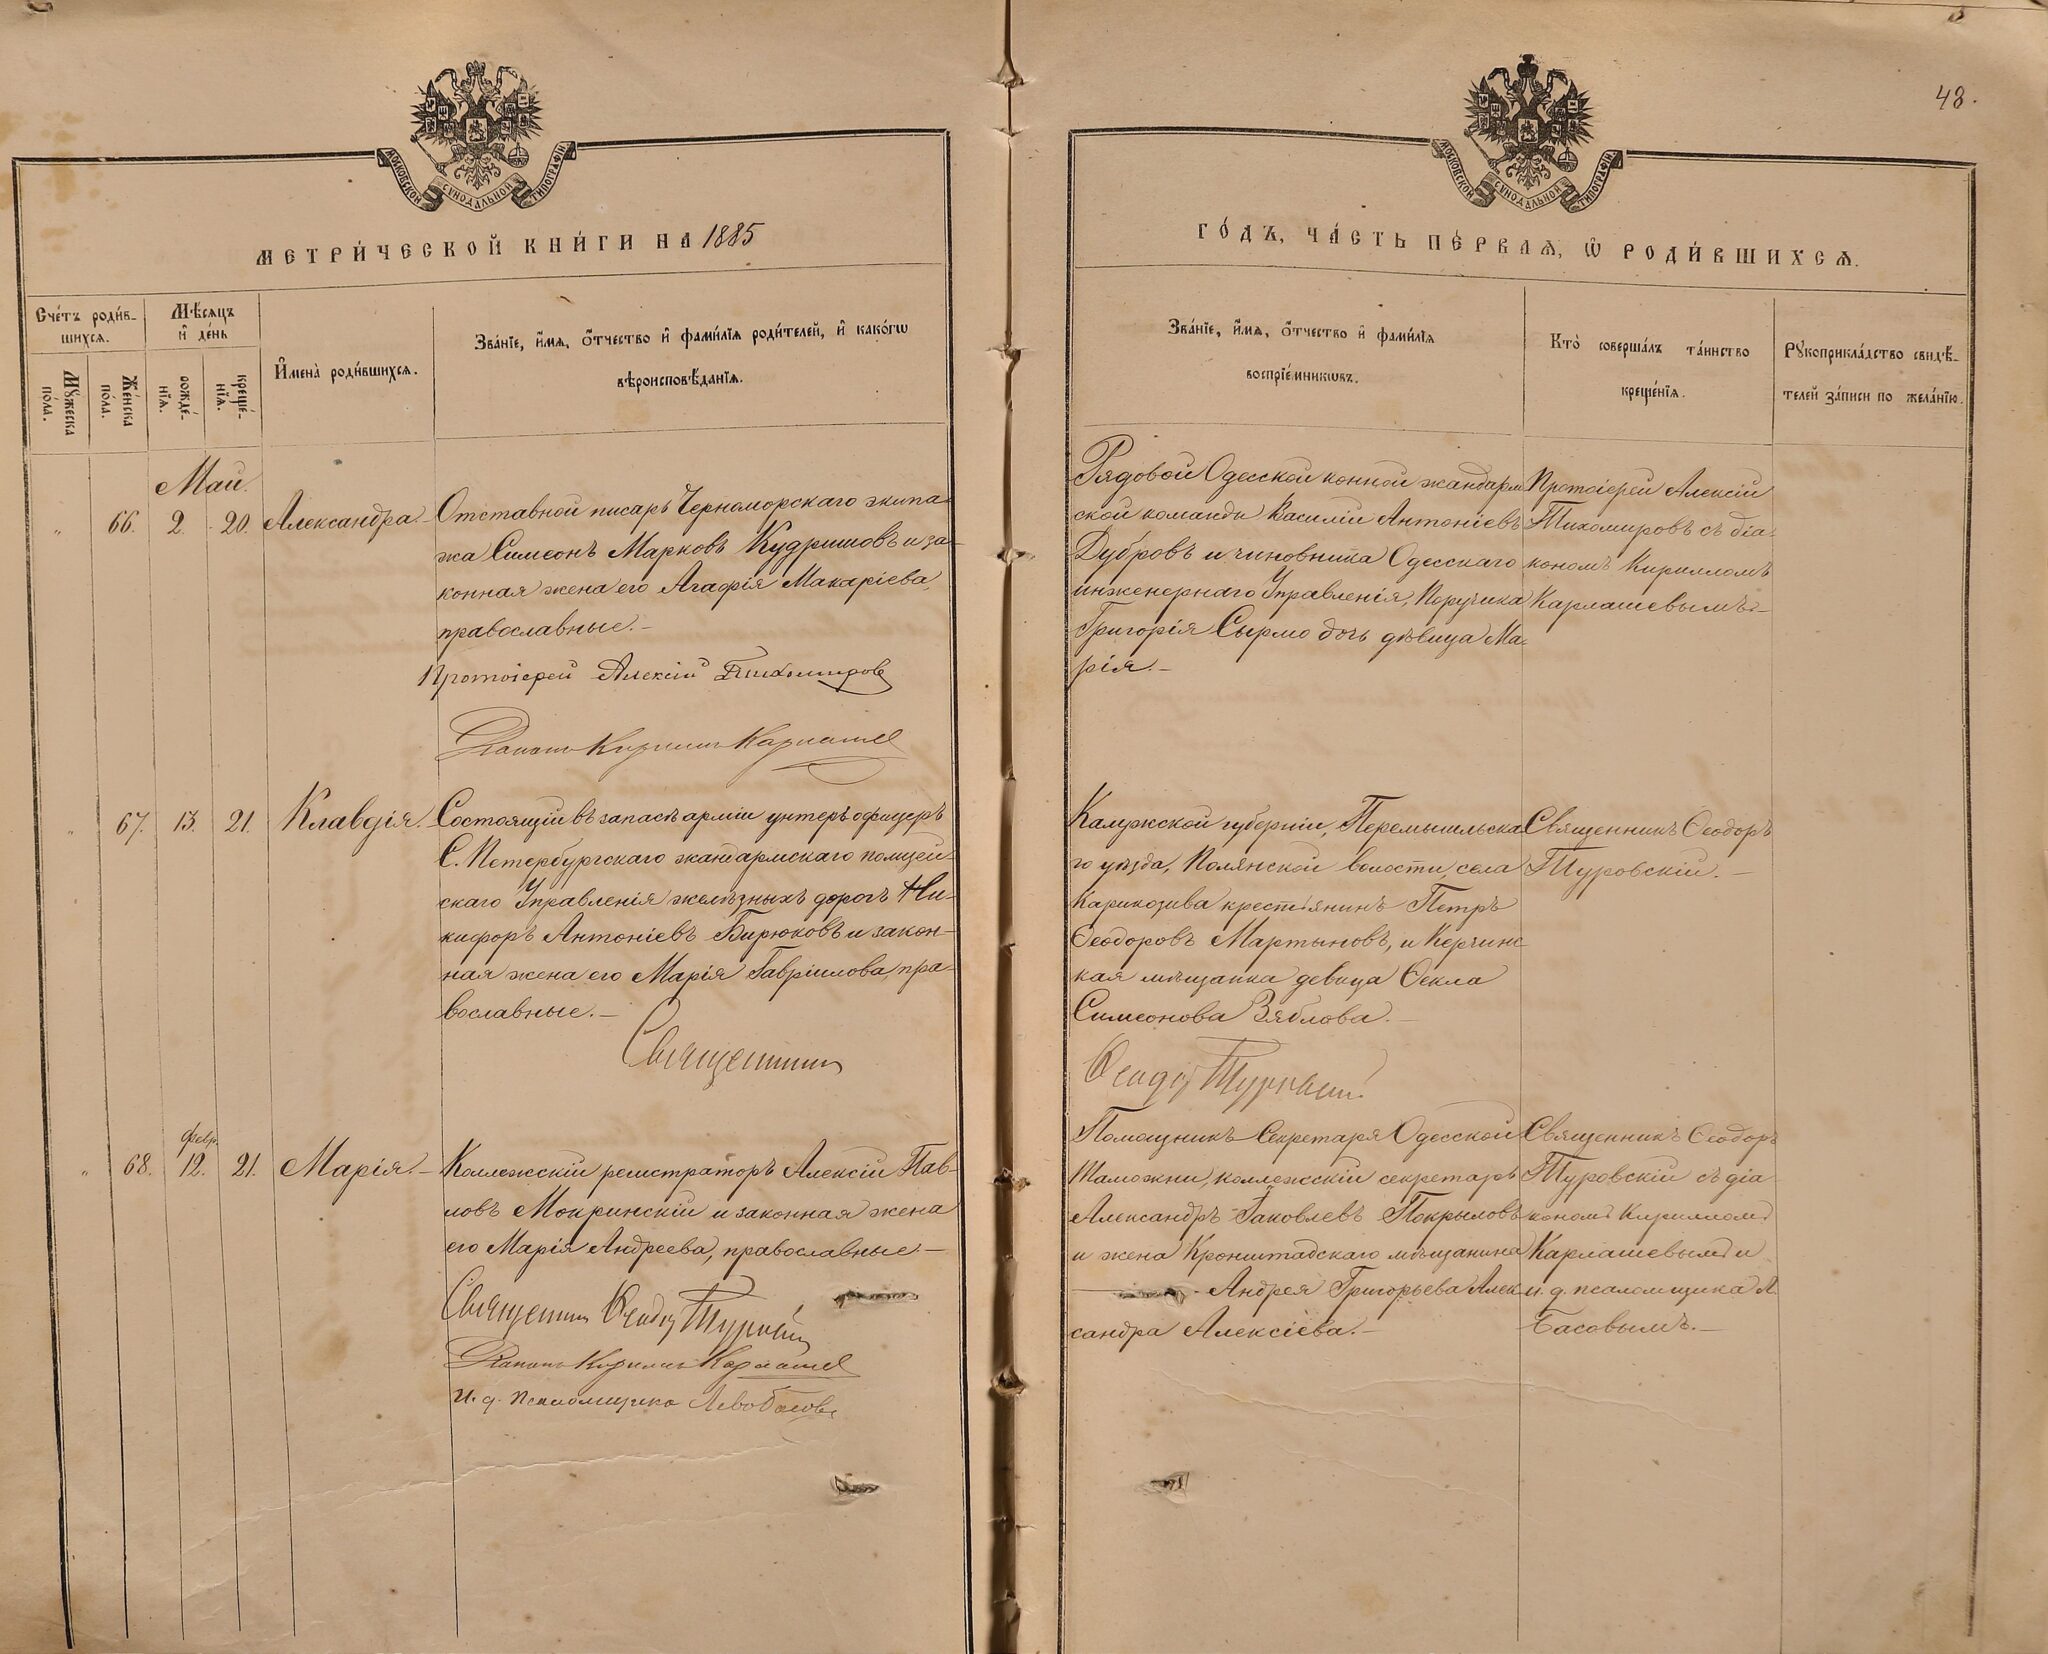 43.
МОСКОВСКОЙ СѴНОДАЛЬНОЙ ТИПОГРАФІИ
МОСКОВСКОЙ СѴНОДАЛЬНОЙ ТИПОГРАФІИ
МЕТРИ́ЧЕСКОЙ КНИ́ГИ НА 1885
ГО́ДЪ, ЧА́СТЬ ПЕ́РВАѦ, Ѡ҆ РОДИ́ВШИХСѦ.
Сче́тъ роди́в-
шихсѧ.
Мѣ́сѧцъ
и҆ де́нь
Мꙋ́жеска
по́ла.
Же́нска
по́ла.
рожде́-
нїѧ.
креще́-
нїѧ.
И҆мена̀ роди́вшихсѧ.
Зва́нїе, и҆́мѧ, Ѻ҆́тчество и҆ фами́лїѧ роди́телей, и҆ како́гѡ
вѣроисповѣ́данїѧ.
Зва́нїе, и҆́мѧ, Ѻ҆́тчество и҆ фами́лїѧ
воспрїе́мникѡвъ.
Кто̀ соверша́лъ та́инство
креще́нїѧ.
Рꙋкоприкла́дство свидѣ́-
телей за́писи по жела́нїю.
Май.
" 66. 2. 20. Александра.
Отставной писарь Черноморскаго экипа-
жа Симеонъ Марковъ Кудришовъ и за-
конная жена его Агафія Макаріева,
православные.-
Протоіерей Алексій Тихомировъ
Діаконъ Кириллъ Карпашев
Рядовой Одесской конной жандарм
ской команды Василій Антоніевъ
Дубровъ и чиновника Одесскаго
инженернаго Управленія, Поручика
Григорія Сырмо дочь дѣвица Ма-
рія.-
Протоіерей Алексій
Тихомировъ съ діа-
кономъ Кирилломъ
Карпашевымъ.-
" 67. 13. 21. Клавдія.
Состоящій въ запасѣ арміи унтеръ офицеръ
С. Петербургскаго жандармскаго полицей-
скаго Управленія желѣзныхъ дорогъ Ни-
кифоръ Антоніевъ Бирюковъ и закон-
ная жена его Марія Гавріилова, пра-
вославные.-
Священник
Калужской губерніи, Перемышльска
го уѣзда, Полянской волости, села
крестьянинъ Петръ
Ѳеодоровъ Мартыновъ, и Керченс
кая мѣщанка девица Ѳекла
Симеонова Зяблова.-
Ѳеодор Туровскій.
Священникъ Ѳеодоръ
Туровскій.-
" 68. февр. 12. 21. Марія.-
Коллежскій регистраторъ Алексій Пав-
ловъ Мокринскій и законная жена
его Марія Андреева, православные.-
Священник Ѳеодор Туровскій
Діаконъ Кириллъ Карпашев
И. д. Псаломщика Левъ Басовъ
Помощникъ Секретаря Одесской
Таможни, коллежскій секретарь
Александръ Яковлевъ Покрыловъ
и жена Кронштадскаго мѣщанина
Андрея Григорьева Алек
сандра Алексіева.-
Священникъ Ѳеодоръ
Туровскій съ діа
кономъ Кирилломъ
Карпашевымъ и
и. д. псаломщика Л.
Басовымъ.-